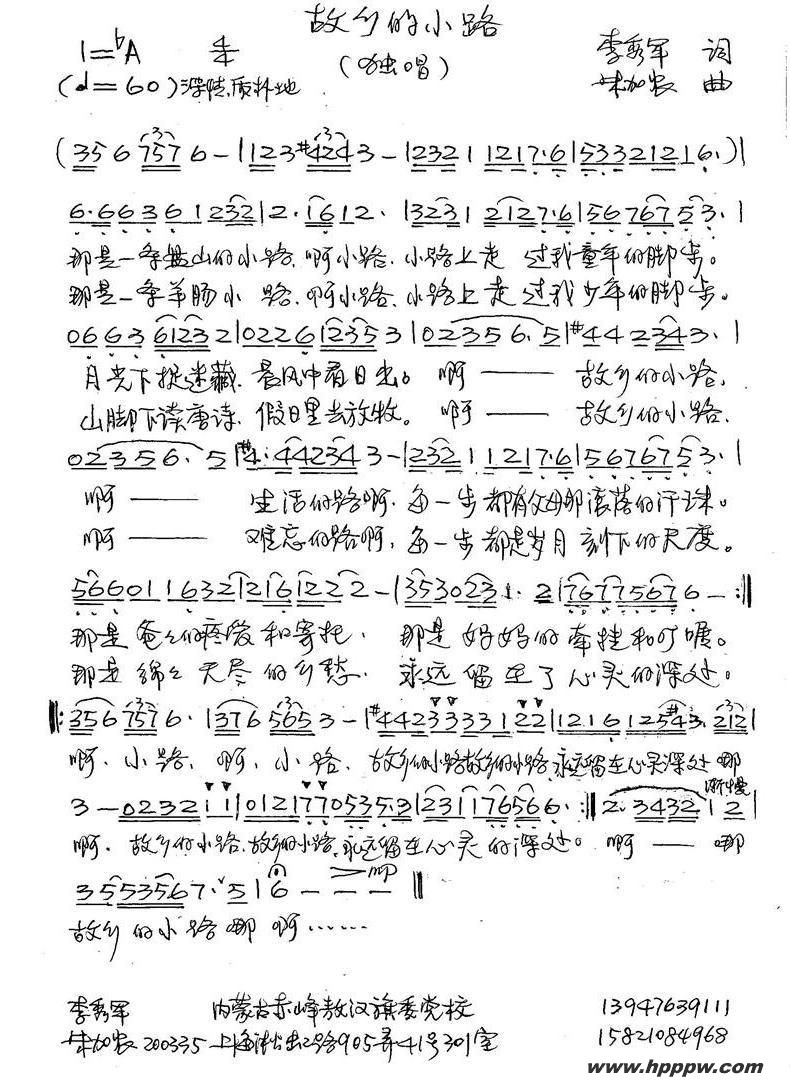 故乡的小路
(独唱)
1=bA 4/4
(d=60)深情、质朴地
李秀军 词
朱加农 曲
(356 7576 - | 123 #4243 - | 2321 1217·6 | 53321216·) |
6·6636 1232 | 2·1612· | 3231 2127·6 | 5676753· |
那是一条盘山的小路,啊小路,小路上走过我童年的脚步。
那是一条羊肠小路,啊小路,小路上走过我少年的脚步。
066361232 | 022612353 | 02356·5 | #442343· |
月光下捉迷藏,晨风中看日出。啊——故乡的小路,
山脚下读唐诗,假日里去放牧。啊——故乡的小路,
02356·5 | #4·442343 - | 2321 1217·6 | 5676753· |
啊——生活的路啊,每一步都有父母那滚落的汗珠。
啊——难忘的路啊,每一步都是岁月刻下的尺度。
566011632 | 2161222 - | 3530231·2 | 76775676 - :||
那是爸爸的疼爱和寄托,那是妈妈的牵挂和叮嘱。
那是绵绵无尽的乡愁,永远留在了心灵的深处。
||: 356 7576· | 376 5653 - | #44233333122 | 1216125#43·212 |
啊,小路,啊,小路,故乡的小路故乡的小路,永远留在心灵深处 哪
渐慢
3 - 0232211 | 012177053 5·3 | 23117656 6· :|| 2·343212 |
啊,故乡的小路,故乡的小路,永远留在心灵的深处。啊——哪
3553567·5 | 6 - - - ||
故乡的小路哪啊……
李秀军 内蒙古赤峰敖汉旗委党校 13947639111
朱加农 200335 上海淞虹路905弄41号301室 15821084968
www.hpppw.com